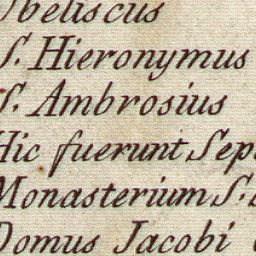 Obeliscus
S. Hieronymus
S. Ambrosius
Hic fuerunt
Monasterium S.
Domus Jacobi